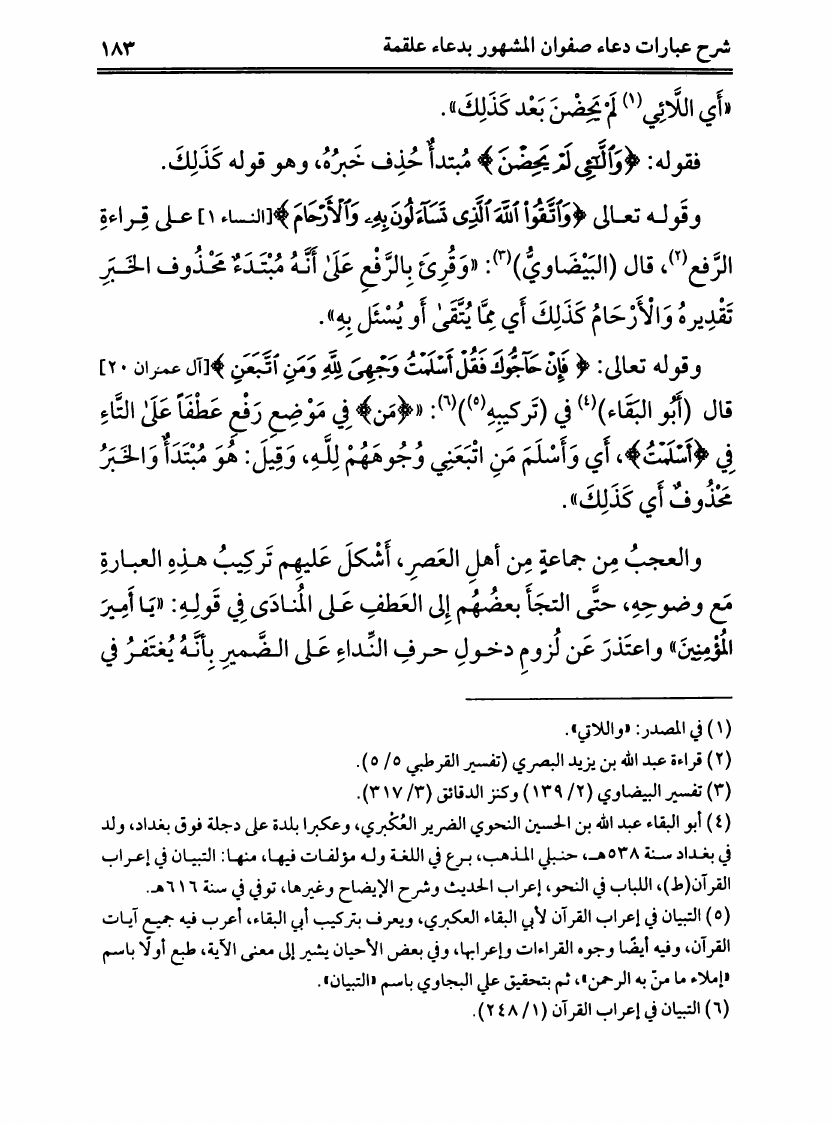 شرح عبارات دعاء صفوان المشهور بدعاء علقمة ١٨٣
«أَي اللَّائِي(١) لَمْ يَحِضْنَ بَعْد كَذَلِكَ».
فقوله: ﴿وَٱلَّٰٓـِٔى لَمْ يَحِضْنَ﴾ مُبتدأٌ حُذِف خَبرُهُ، وهو قوله كَذَلِكَ.
وقوله تعالى ﴿وَٱتَّقُوا۟ ٱللَّهَ ٱلَّذِى تَسَآءَلُونَ بِهِۦ وَٱلْأَرْحَامَ﴾[النساء ١] على قِراءةِ
الرَّفع(٢)، قال (البَيْضَاويُّ)(٣): «وَقُرِئَ بِالرَّفْعِ عَلَىٰ أَنَّهُ مُبْتَدَءٌ مَحْذُوف الخَبَرِ
تَقْدِيرهُ وَالْأَرْحَامُ كَذَلِكَ أَي مِمَّا يُتَّقَىٰ أَو يُسْئَل بِهِ».
وقوله تعالى: ﴿فَإِنْ حَآجُّوكَ فَقُلْ أَسْلَمْتُ وَجْهِىَ لِلَّهِ وَمَنِ ٱتَّبَعَنِ﴾[آل عمران ٢٠]
قال (أَبُو البَقَاء)(٤) في (تَركيبِهِ(٥))(٦): «﴿مَن﴾ فِي مَوْضِعِ رَفْعٍ عَطْفَاً عَلَىٰ التَّاءِ
فِي ﴿أَسْلَمْتُ﴾، أَي وَأَسْلَمَ مَنِ اتْبَعَنِي وُجُوهَهُمْ لِلَّهِ، وَقِيلَ: هُوَ مُبْتَدَأٌ وَالخَبَرُ
مَحْذُوفٌ أَي كَذَلِكَ».
والعجبُ مِن جماعةٍ مِن أهلِ العَصرِ، أَشْكلَ عَليهِم تَركِيبُ هذِهِ العبارةِ
مَع وضوحِهِ، حتَّى التجَأَ بعضُهُم إِلى العَطفِ عَلى المُنادَى فِي قَولِهِ: «يَا أَمِيرَ
المُؤْمِنِينَ» واعتَذرَ عَن لُزومِ دخولِ حرفِ النِّداءِ عَلى الضَّميرِ بِأنَّهُ يُغتَفرُ في
(١) في المصدر: «واللاتي».
(٢) قراءة عبد الله بن يزيد البصري (تفسير القرطبي ٥/ ٥).
(٣) تفسير البيضاوي (٢/ ١٣٩) وكنز الدقائق (٣/ ٣١٧).
(٤) أبو البقاء عبد الله بن الحسين النحوي الضرير العُكْبري، وعكبرا بلدة على دجلة فوق بغداد، ولد
في بغداد سنة ٥٣٨هـ، حنبلي المذهب، برع في اللغة وله مؤلفات فيها، منها: التبيان في إعراب
القرآن(ط)، اللباب في النحو، إعراب الحديث وشرح الإيضاح وغيرها، توفي في سنة ٦١٦هـ.
(٥) التبيان في إعراب القرآن لأبي البقاء العكبري، ويعرف بتركيب أبي البقاء، أعرب فيه جميع آيات
القرآن، وفيه أيضًا وجوه القراءات وإعرابها، وفي بعض الأحيان يشير إلى معنى الآية، طبع أولًا باسم
«إملاء ما منّ به الرحمن»، ثم بتحقيق علي البجاوي باسم «التبيان».
(٦) التبيان في إعراب القرآن (١/ ٢٤٨).